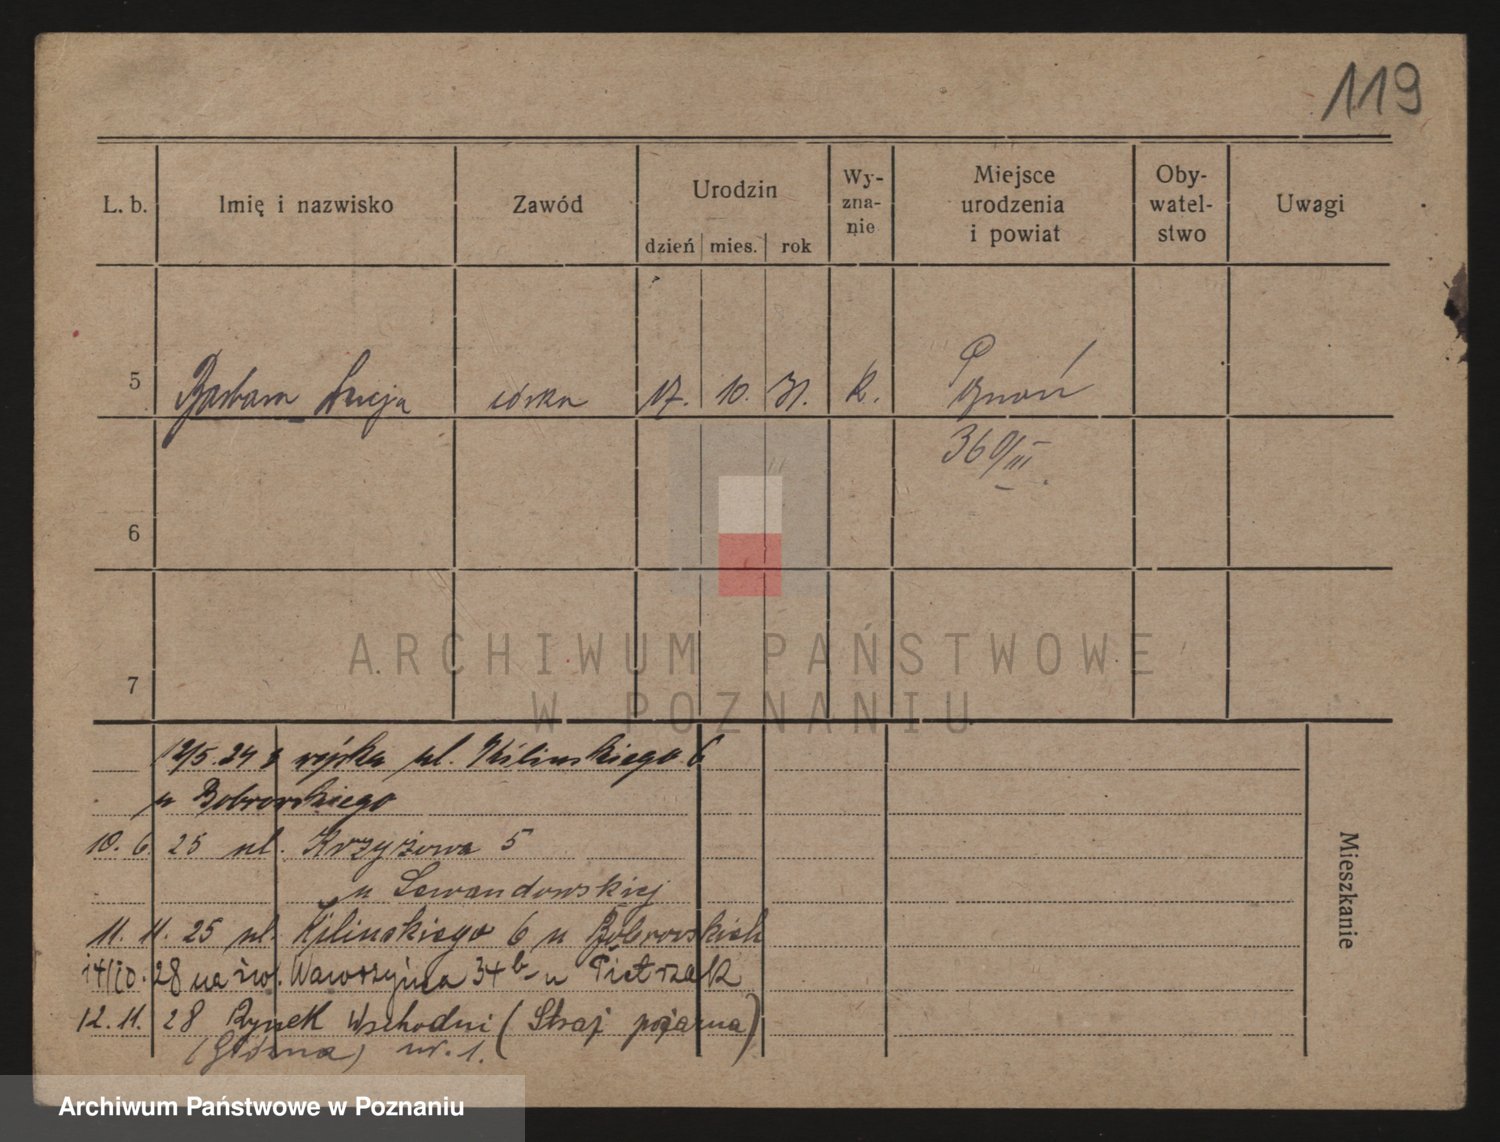 119
L. b. Imię i nazwisko Zawód Urodzin dzień mies. rok Wy-zna-nie Miejsce urodzenia i powiat Oby-watel-stwo Uwagi
5 Barbara Łucja córka 17. 10. 31. k. Poznań
360/III
6
7
ARCHIWUM PAŃSTWOWE
W POZNANIU
12/5.24 z wojska ul. Kilinskiego 6
u Bobrowskiego
10. 6 25 ul. Krzyżowa 5
u Lewandowskiej
11. 11. 25 ul. Kilinskiego 6 u Bobrowskich
14/10. 28 na św. Wawrzyńca 34 b u Pietrzak
12. 11. 28 Rynek Wschodni (Straż pożarna)
(Główna) nr. 1.
Mieszkanie
Archiwum Państwowe w Poznaniu